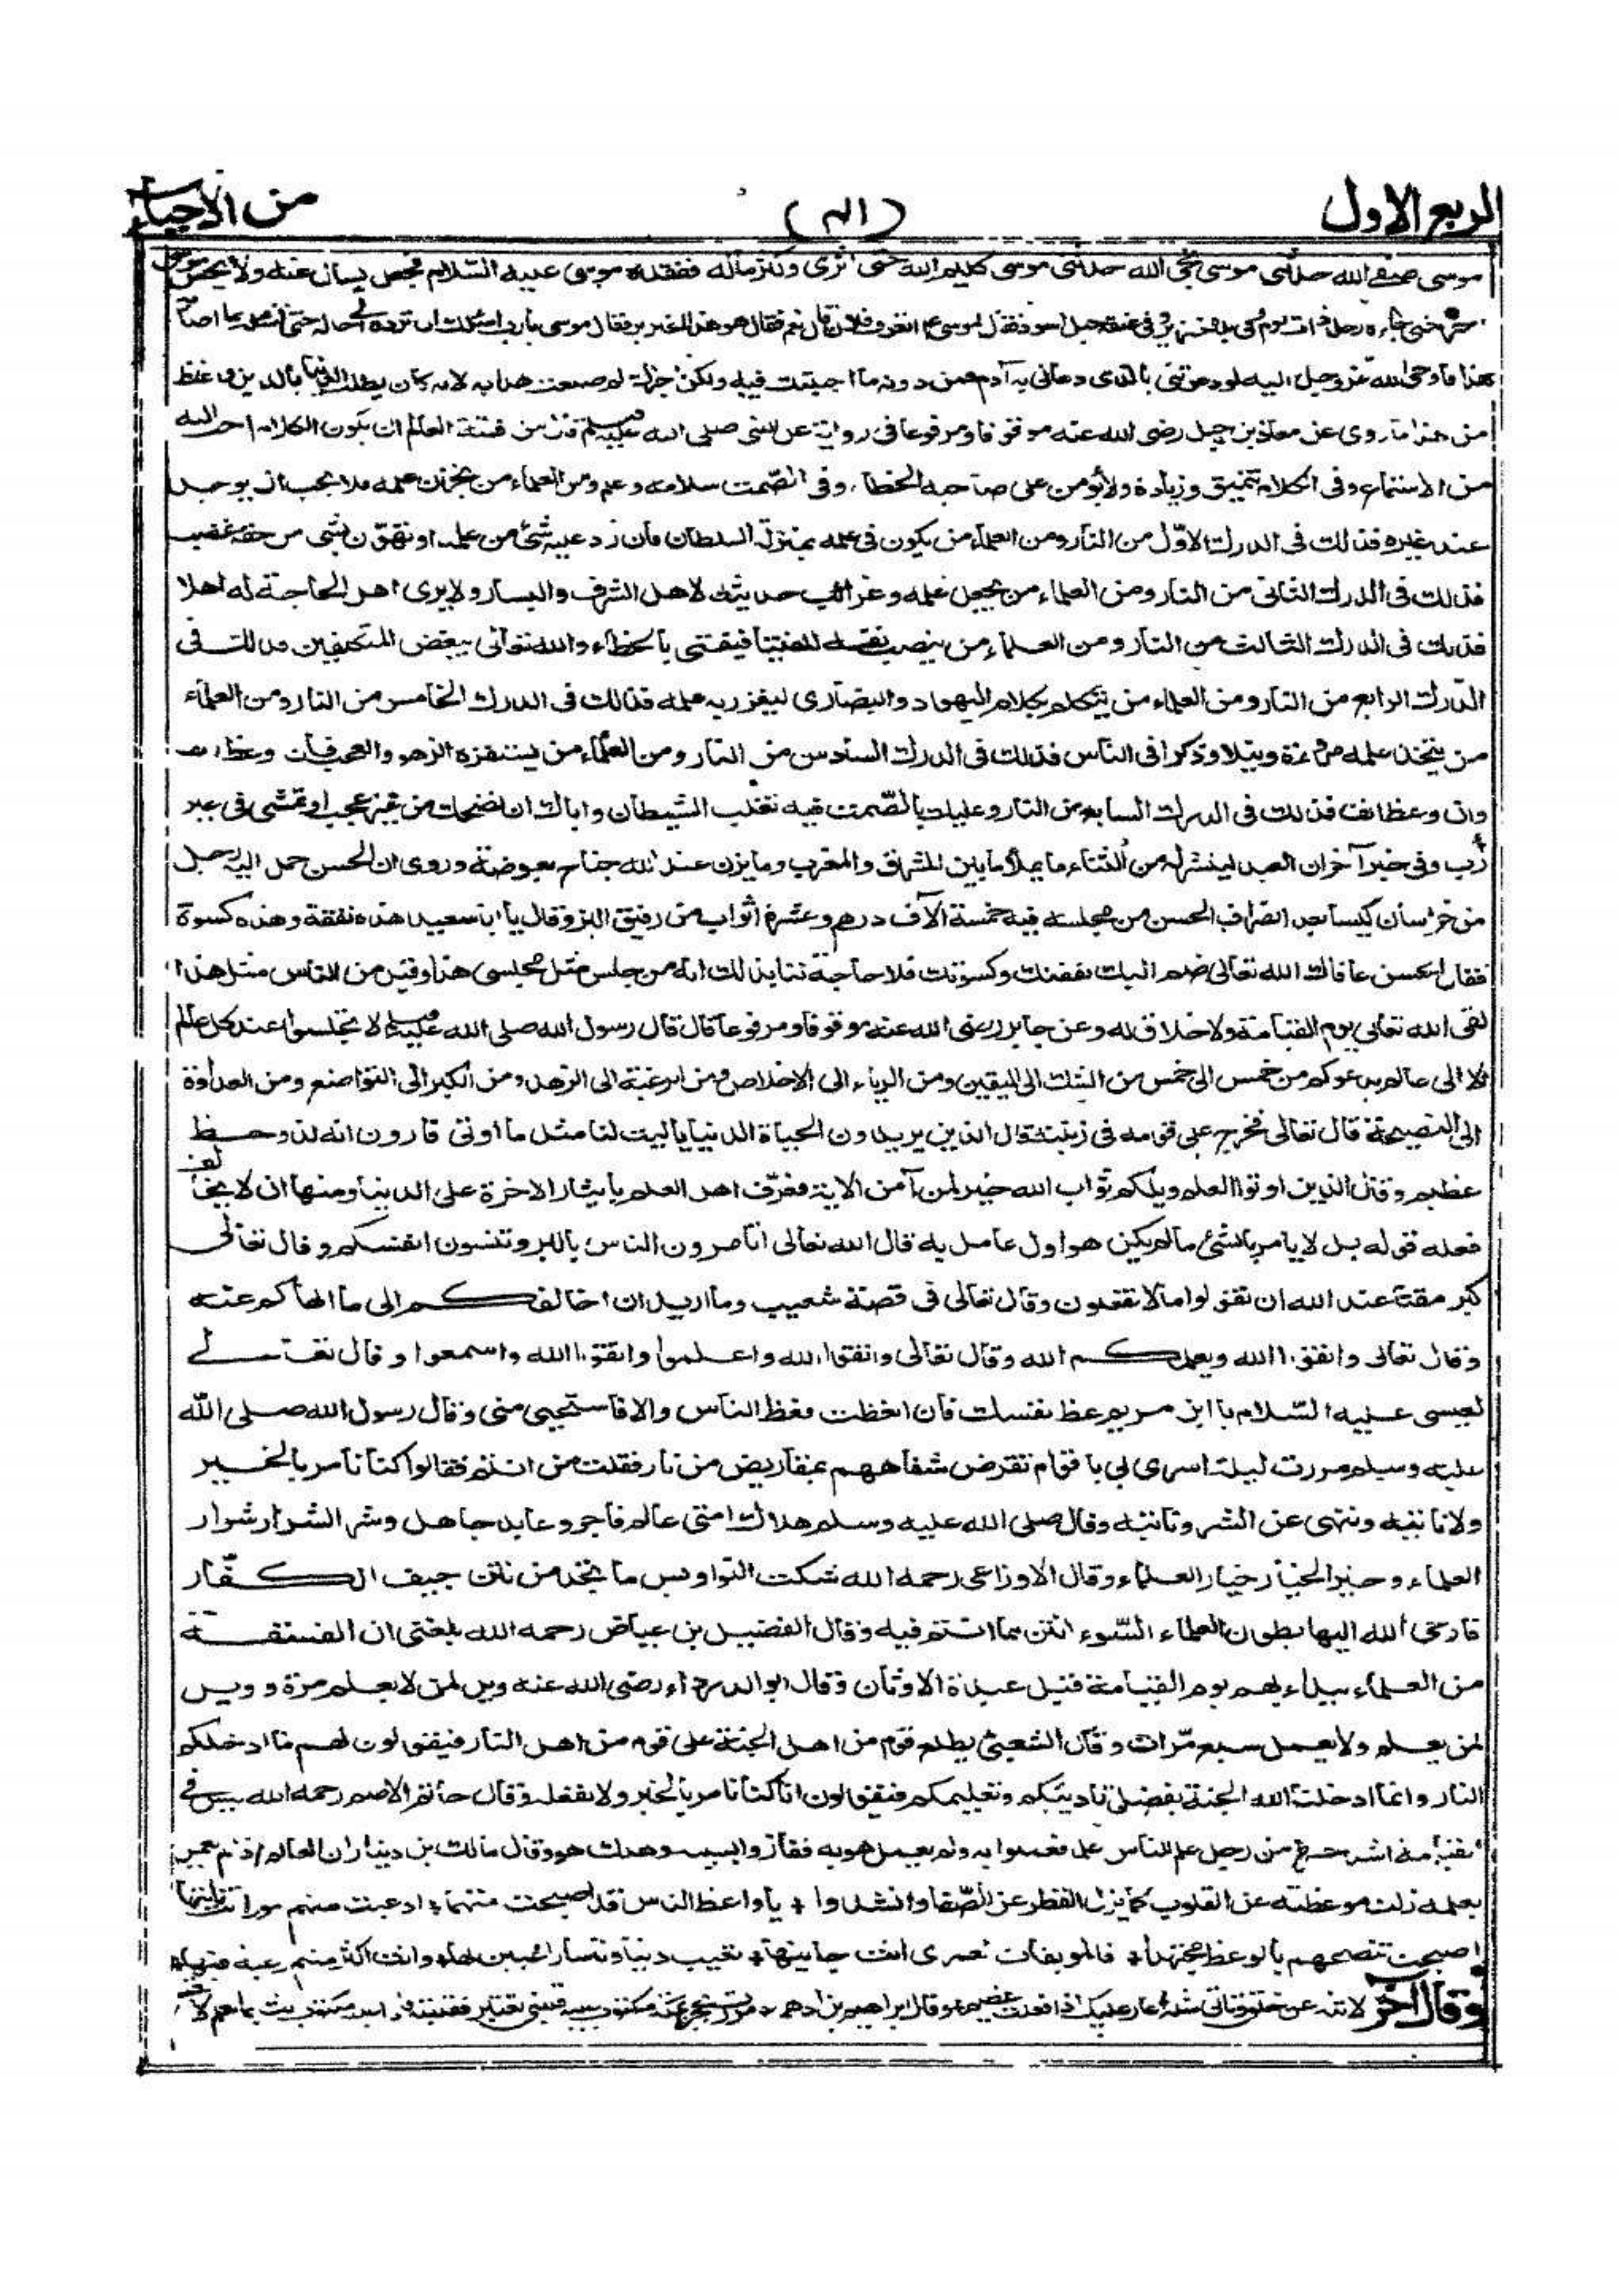 الربع الاول
من الاحياء
موسى صفى الله حدثنى موسى نجى الله حدثنى موسى كليم الله حتى اثرى وكثر ماله ففقده موسى عليه السلام فجعل يسأل عنه ولا يحس
حتى جاءه رجل ذات يوم وفى يده خنزير وفى عنقه حبل اسود فقال لموسى اتعرف فلانا قال نعم فقال هو هذا الخنزير فقال موسى يارب اسئلك ان ترده الى حاله حتى اسأله بما اصابه
هذا فاوحى الله عز وجل اليه لو دعوتنى بالذى دعانى به آدم فمن دونه ما اجبتك فيه ولكن اخبرك لم صنعت هذا به لانه كان يطلب الدنيا بالدين واغلظ
من هذا ما روى عن معاذ بن جبل رضى الله عنه موقوفا ومرفوعا فى رواية عن النبى صلى الله عليه وسلم قال من فتنة العالم ان يكون الكلام احب اليه
من الاستماع وفى الكلام تنميق وزيادة ولا يؤمن على صاحبه الخطأ وفى الصمت سلامة وعلم ومن العلماء من يخزن علمه فلا يحب ان يوجد
عند غيره فذلك فى الدرك الاول من النار ومن العلماء من يكون فى علمه بمنزلة السلطان فان رد عليه شئ من علمه او تهون بشئ من حقه غضب
فذلك فى الدرك الثانى من النار ومن العلماء من يجعل علمه وغرائب حديثه لاهل الشرف واليسار ولا يرى اهل الحاجة له اهلا
فذلك فى الدرك الثالث من النار ومن العلماء من ينصب نفسه للفتيا فيفتى بالخطاء والله تعالى يبغض المتكلفين فذلك فى
الدرك الرابع من النار ومن العلماء من يتكلم بكلام اليهود والنصارى ليغزر به علمه فذلك فى الدرك الخامس من النار ومن العلماء
من يتخذ علمه مروءة ونبلا وذكرا فى الناس فذلك فى الدرك السادس من النار ومن العلماء من يستفزه الزهو والعجب فان وعظ عنف
وان وعظ انف فذلك فى الدرك السابع من النار وعليك بالصمت فبه تغلب الشيطان واياك ان تضحك من غير عجب او تمشى فى غير
أرب وفى خبر آخر ان العبد لينشر له من الثناء ما يملأ ما بين المشرق والمغرب وما يزن عند الله جناح بعوضة وروى ان الحسن حمل اليه رجل
من خراسان كيسا بعد انصراف الحسن من مجلسه فيه خمسة الآف درهم وعشرة اثواب من رقيق البز وقال يا ابا سعيد هذه نفقة وهذه كسوة
فقال الحسن عافاك الله تعالى ضم اليك نفقتك وكسوتك فلا حاجة لنا بذلك انه من جلس مثل مجلسى هذا وقبل من الناس مثل هذا
لقى الله تعالى يوم القيامة ولا خلاق له وعن جابر رضى الله عنه موقوفا ومرفوعا قال قال رسول الله صلى الله عليه وسلم لا تجلسوا عند كل عالم
الا الى عالم يدعوكم من خمس الى خمس من الشك الى اليقين ومن الرياء الى الاخلاص ومن الرغبة الى الزهد ومن الكبر الى التواضع ومن العداوة
الى النصيحة قال تعالى فخرج على قومه فى زينته قال الذين يريدون الحياة الدنيا يا ليت لنا مثل ما اوتى قارون انه لذو حظ
عظيم وقال الذين اوتوا العلم ويلكم ثواب الله خير لمن آمن الاية فعرف اهل العلم بايثار الاخرة على الدنيا ومنها ان لا يخالف
فعله قوله بل لا يامر بالشئ ما لم يكن هو اول عامل به قال الله تعالى اتامرون الناس بالبر وتنسون انفسكم وقال تعالى
كبر مقتا عند الله ان تقولوا ما لا تفعلون وقال تعالى فى قصة شعيب وما اريد ان اخالفكم الى ما انهاكم عنه
وقال تعالى واتقوا الله ويعلمكم الله وقال تعالى واتقوا الله واعلموا واتقوا الله واسمعوا وقال تعالى
لعيسى عليه السلام يا ابن مريم عظ نفسك فان اتعظت فعظ الناس والا فاستحيى منى وقال رسول الله صلى الله
عليه وسلم مررت ليلة اسرى بى باقوام تقرض شفاههم بمقاريض من نار فقلت من انتم فقالوا كنا نامر بالخير
ولا ناتيه وننهى عن الشر وناتيه وقال صلى الله عليه وسلم هلاك امتى عالم فاجر وعابد جاهل وشر الشرار شرار
العلماء وخير الخيار خيار العلماء وقال الاوزاعى رحمه الله شكت النواويس ما تجد من نتن جيف الكفار
فاوحى الله اليها بطون العلماء السوء انتن مما انتم فيه وقال الفضيل بن عياض رحمه الله بلغنى ان الفسقة
من العلماء يبداء بهم يوم القيامة قبل عبدة الاوثان وقال ابو الدرداء رضى الله عنه ويل لمن لا يعلم مرة وويل
لمن يعلم ولا يعمل سبع مرات وقال الشعبى يطلع قوم من اهل الجنة على قوم من اهل النار فيقولون لهم ما ادخلكم
النار وانما ادخلنا الله الجنة بفضل تاديبكم وتعليمكم فيقولون انا كنا نامر بالخير ولا نفعله وقال حاتم الاصم رحمه الله ليس فى
القيامة اشد حسرة من رجل علم الناس علما فعملوا به ولم يعمل هو به ففازوا بسببه وهلك هو وقال مالك بن دينار ان العالم اذا لم يعمل
بعلمه زلت موعظته عن القلوب كما يزل القطر عن الصفا وانشدوا + يا واعظ الناس قد اصبحت متهما + اذ عبت منهم امورا انت تاتيها
اصبحت تنصحهم بالوعظ مجتهدا + فالموبقات لعمرى انت جانيها + تعيب دنيا وناسا راغبين لها + وانت اكثر منهم رغبة فيها +
وقال آخر لا تنه عن خلق وتاتى مثله + عار عليك اذا فعلت عظيم + وقال ابراهيم بن ادهم مررت بحجر بمكة مكتوب عليه